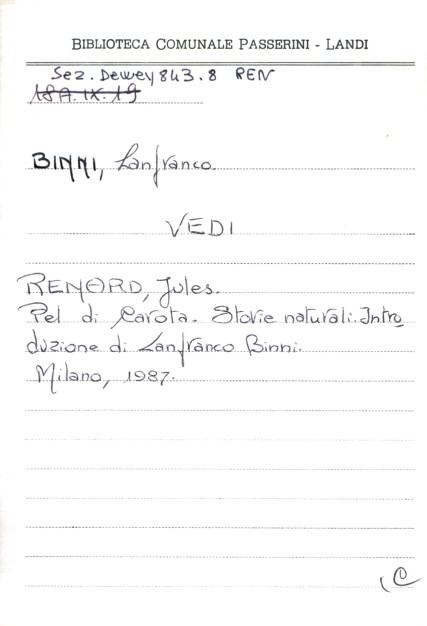 BIBLIOTECA COMUNALE PASSERINI - LANDI
Sez. Dewey 843.8 REN
18A.IX.19
BINNI, Lanfranco.
VEDI
RENARD, Jules.
Pel di Carota. Storie naturali. Intro
duzione di Lanfranco Binni.
Milano, 1987.